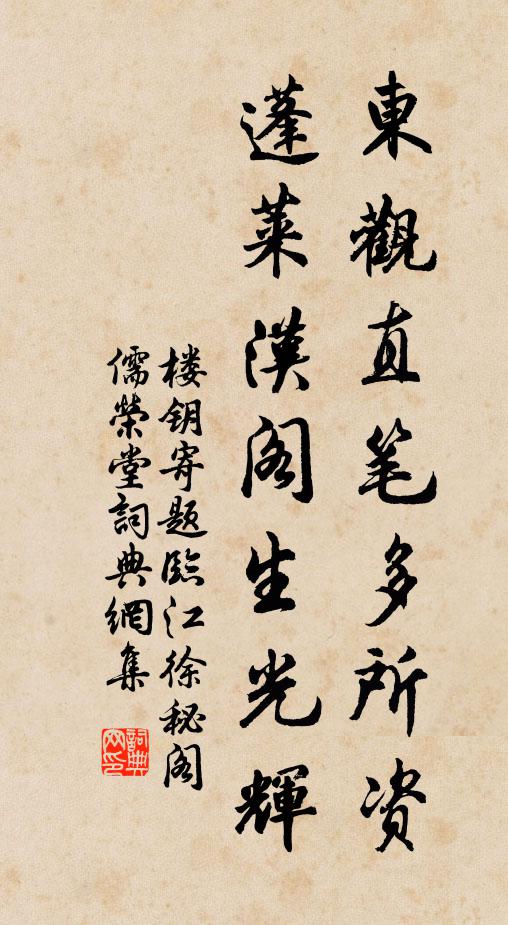 東觀直笔多所资
蓬莱漢阁生光輝
楼钥寄题臨江徐秘阁
儒榮堂詞典網集
詞典
网印